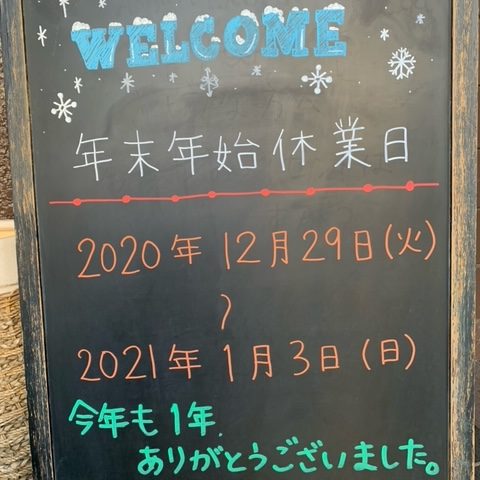 WELCOME
年末年始休業日
2020年 12月29日(火)
〜
2021年 1月3日(日)
今年も1年
ありがとうございました。